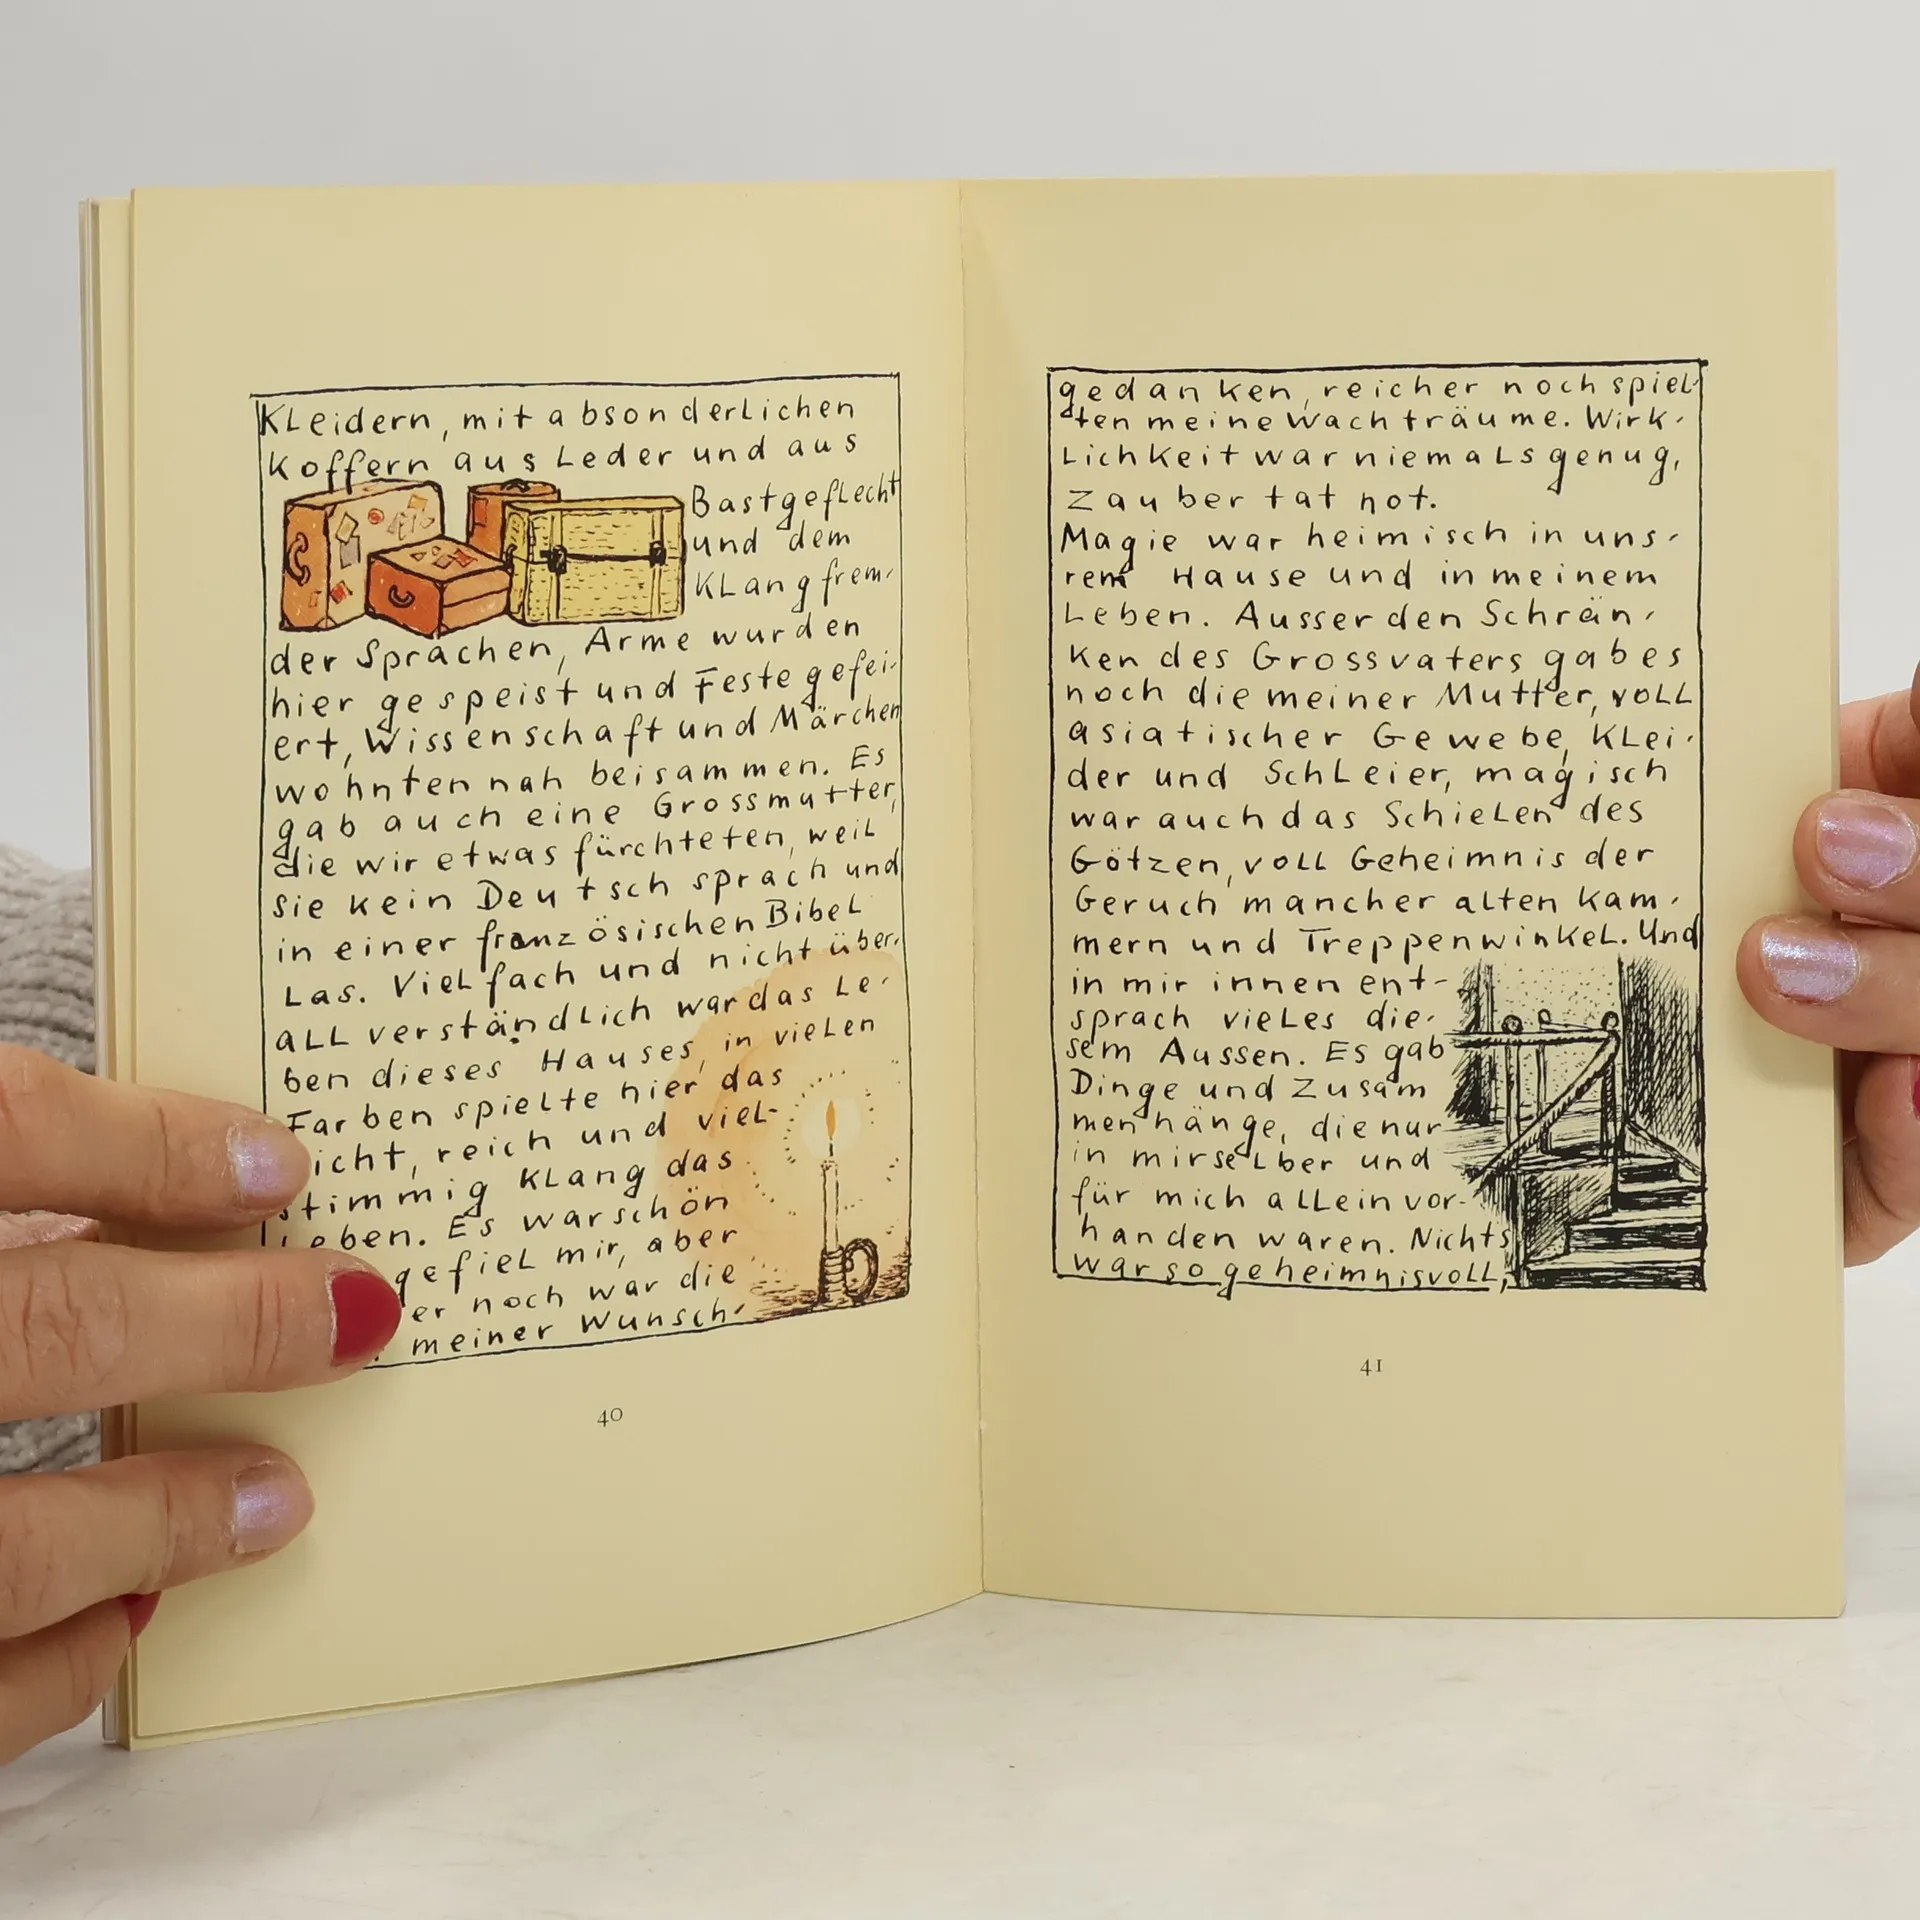 Kleidern, mit absonderlichen
Koffern aus Leder und aus
Bastgeflecht
und dem
Klang frem-
der Sprachen, Arme wurden
hier gespeist und Feste gefei-
ert, Wissenschaft und Märchen
wohnten nah beisammen. Es
gab auch eine Grossmutter,
die wir etwas fürchteten, weil
sie kein Deutsch sprach und
in einer französischen Bibel
las. Vielfach und nicht über-
all verständlich war das Le-
ben dieses Hauses, in vielen
Farben spielte hier das
icht, reich und viel-
stimmig klang das
Leben. Es war schön
gefiel mir, aber
er noch war die
meiner Wunsch-
40
gedanken, reicher noch spiel-
ten meine Wachträume. Wirk-
lichkeit war niemals genug,
Zauber tat not.
Magie war heimisch in uns-
rem Hause und in meinem
Leben. Ausser den Schrän-
ken des Grossvaters gab es
noch die meiner Mutter, voll
asiatischer Gewebe, Klei-
der und Schleier, magisch
war auch das Schielen des
Götzen, voll Geheimnis der
Geruch mancher alten Kam-
mern und Treppenwinkel. Und
in mir innen ent-
sprach vieles die-
sem Aussen. Es gab
Dinge und Zusam
menhänge, die nur
in mir selber und
für mich allein vor-
handen waren. Nichts
war so geheimnisvoll,
41